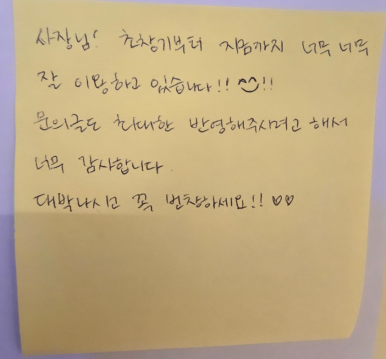 사장님! 초창기부터 지금까지 너무너무
잘 이용하고 있습니다!! ^^!!
문의글도 최대한 반영해주시려고 해서
너무 감사합니다.
대박나시고 꼭 번창하세요!! ♡♡